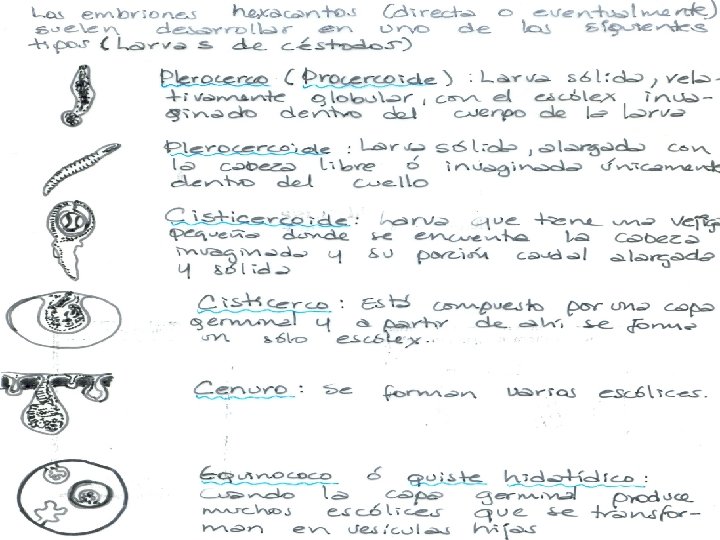 Los embriones hexacantos (directa o eventualmente)
suelen desarrollar en uno de los siguientes
tipos (Larvas de céstodos)
Plerocerco (Procercoide) : Larva sólida, rela-
tivamente globular, con el escólex inva-
ginado dentro del cuerpo de la larva
Plerocercoide : Larva sólida, alargada con
la cabeza libre ó invaginada únicamente
dentro del cuello
Cisticercoide : Larva que tiene una vejiga
pequeña donde se encuentra la cabeza
invaginada y su porción caudal alargada
y sólida
Cisticerco : Está compuesto por una capa
germinal y a partir de ahí, se forma
un sólo escólex.
Cenuro : Se forman varios escólices.
Equinococo ó quiste hidatídico :
Cuando la capa germinal produce
muchos escólices que se transfor-
man en vesículas hijas